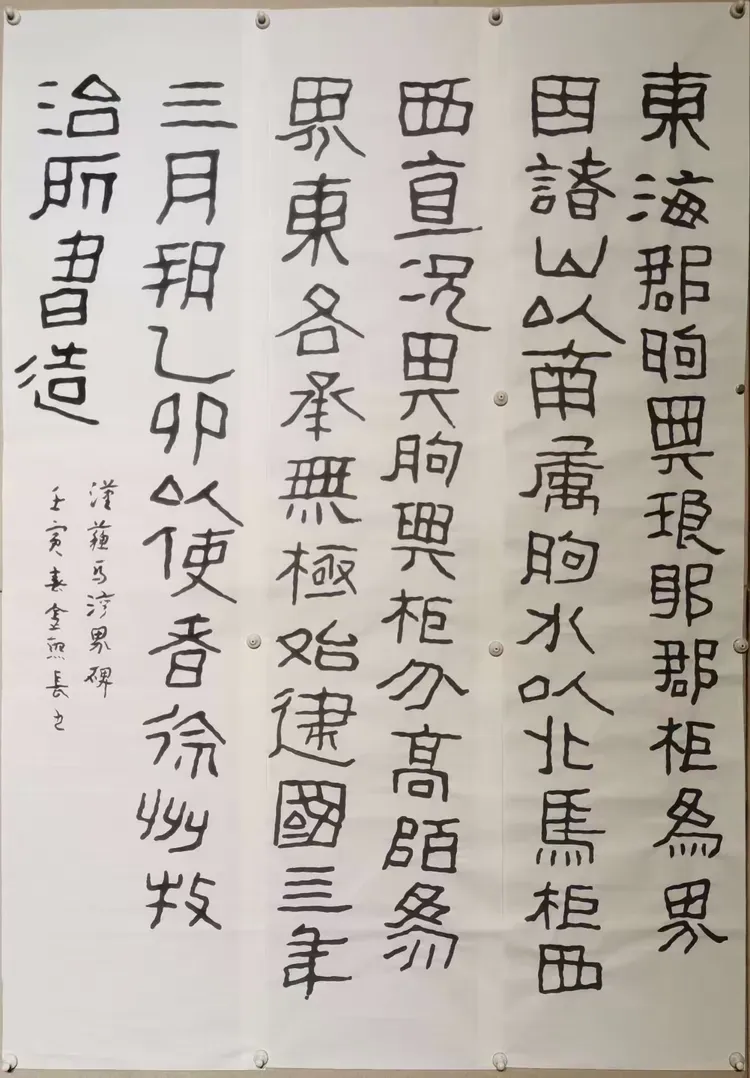 東海郡朐與琅耶郡柜為界
因諸山以南屬朐水以北馬柜西
西直況其朐與柜分高陌為
界東各承無極始建國三年
三月朔乙卯以使者徐州牧
治所書造
漢蘇馬灣界碑
壬寅春